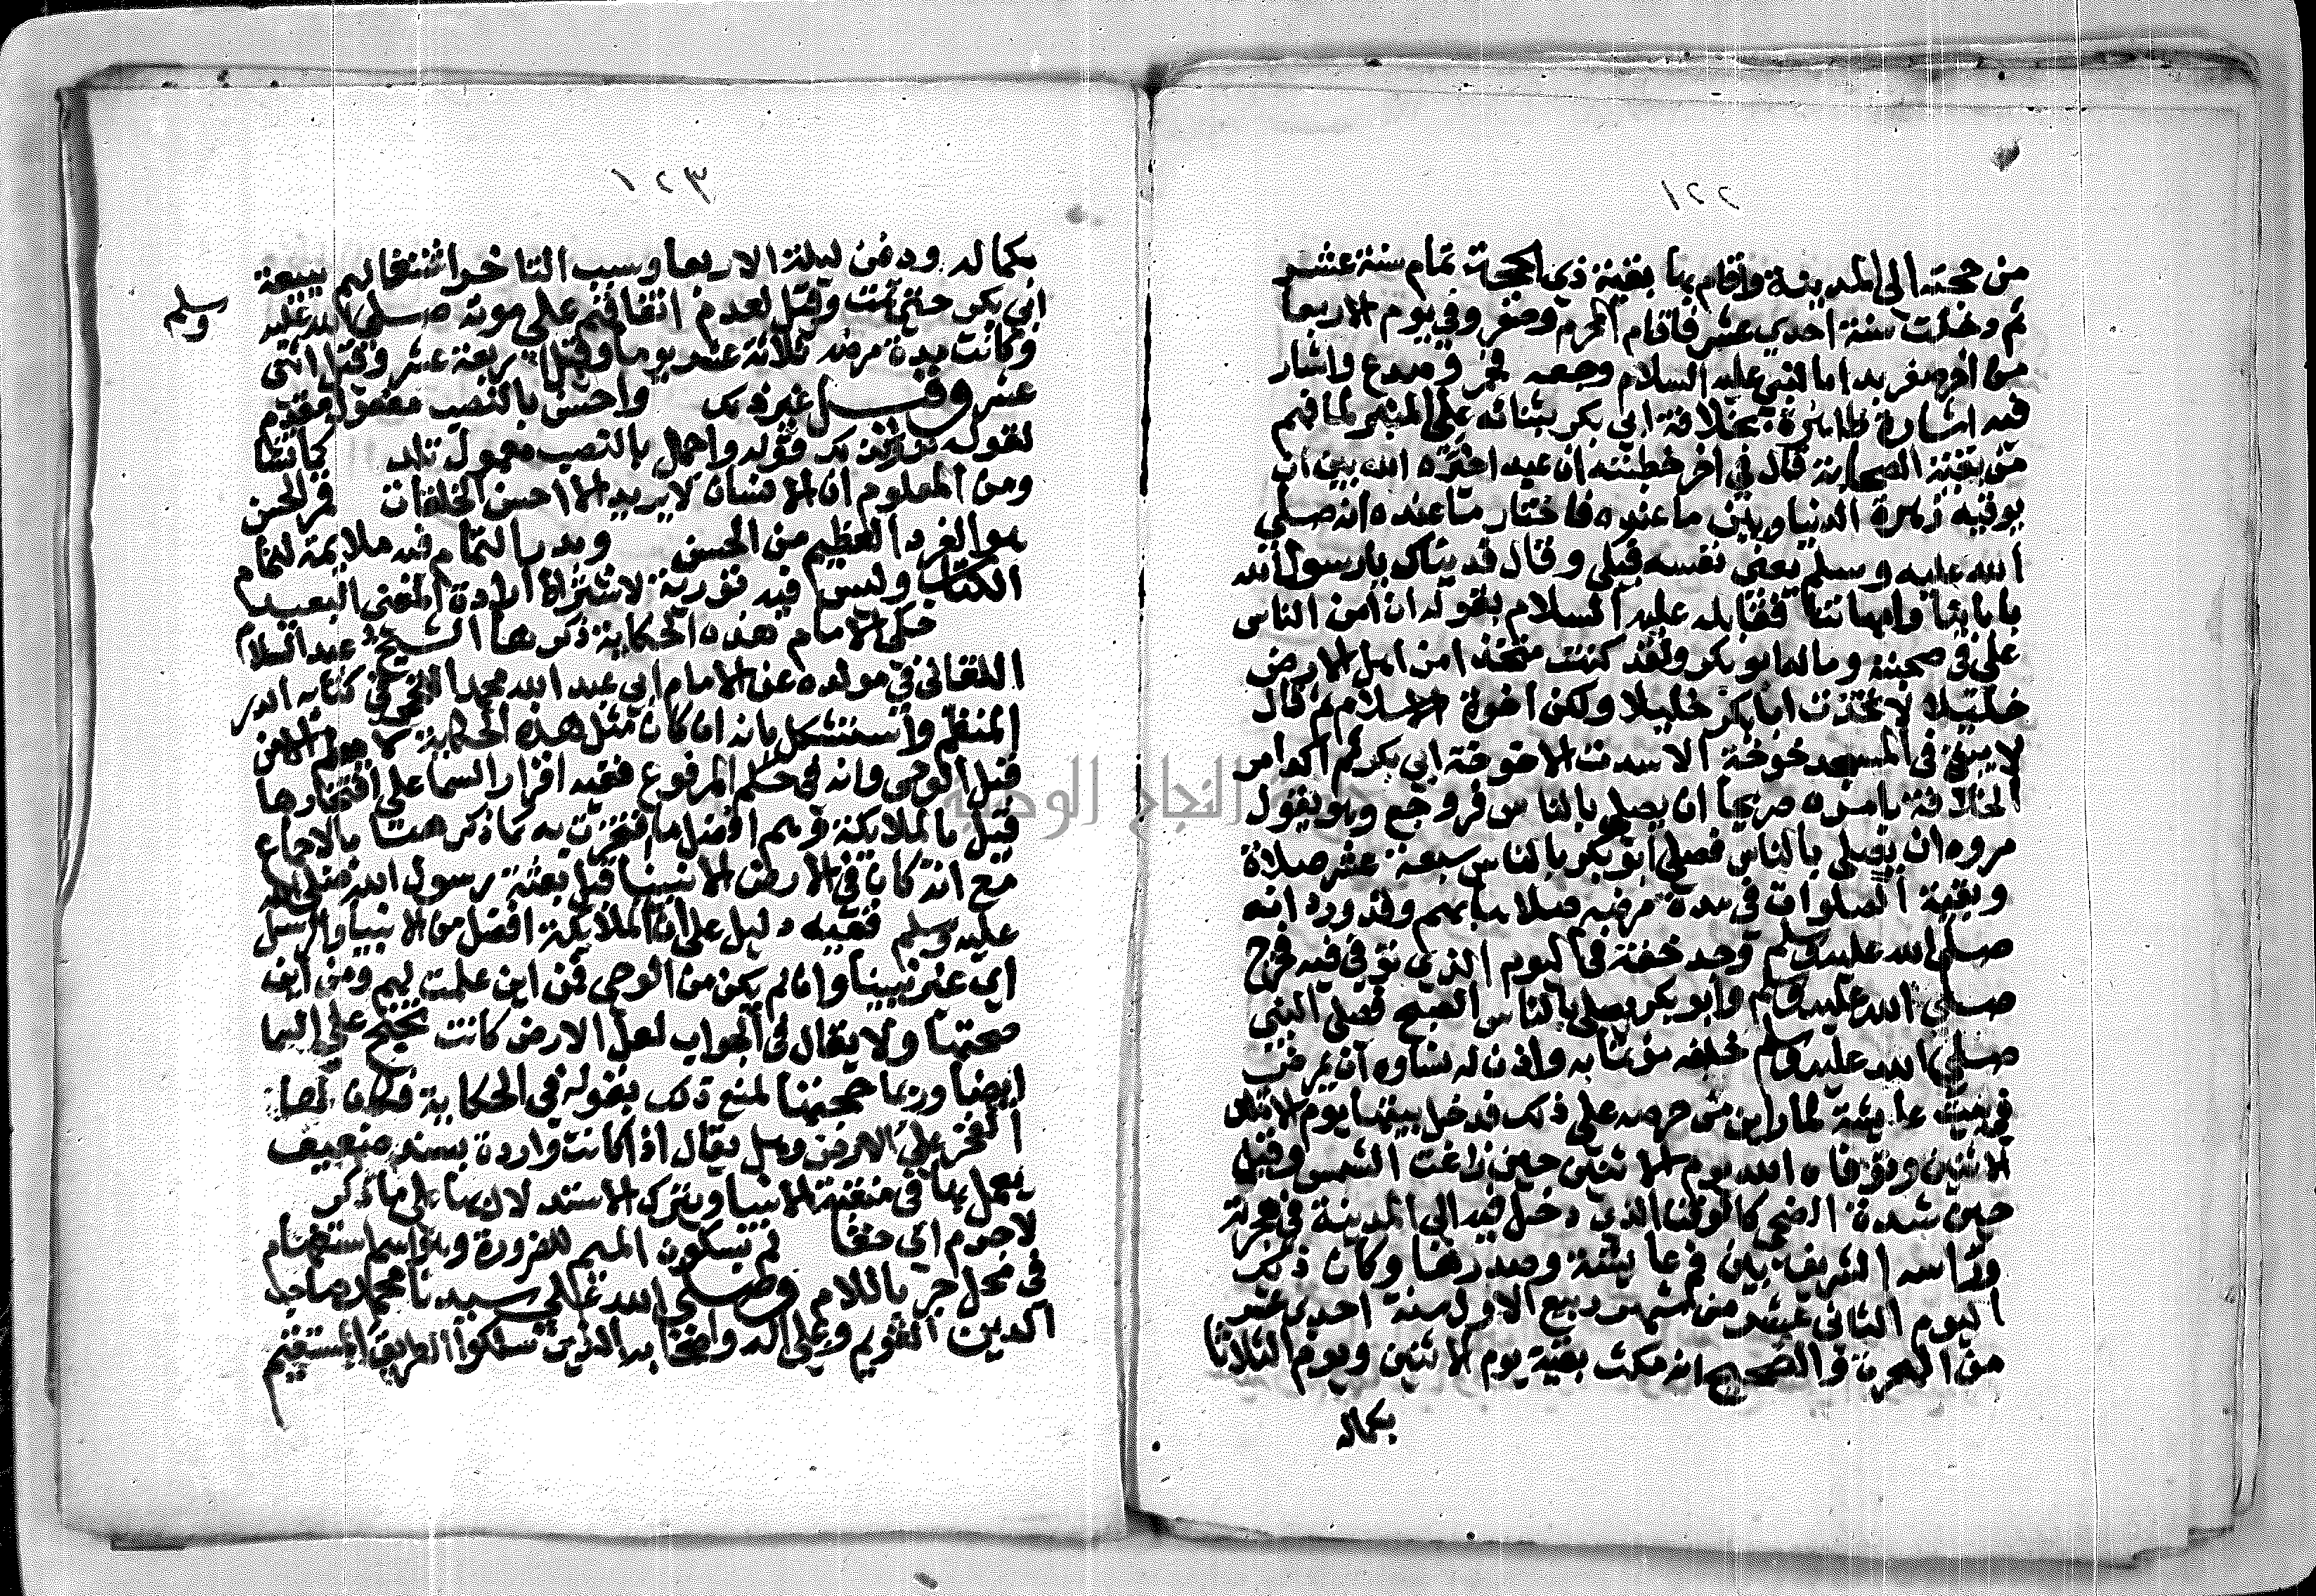 ١٢٢
من حجته الى المدينة واقام بها بقية ذى الحجة تمام سنة عشر
ثم دخلت سنة احدى عشر فاقام المحرم وصفر وفي يوم الاربعا
من اخر صفر بدا بالنبي عليه السلام وجعه فحم وصدع واشار
فيه اشارة ظاهرة بخلافة ابي بكر بثنائه على المنبر لما فهم
من بقية الصحابة قال في اخر خطبته ان عبد اخيره الله بين ان
يوتيه زهرة الدنيا وبين ما عنده فاختار ما عنده انه صلى
الله عليه وسلم يعني نفسه فبكى وقال فديناك يا رسول الله
بابائنا وامهاتنا فقابله عليه السلام بقوله ان امن الناس
على في صحبته وماله ابو بكر ولقد كنت متخذا من اهل الارض
خليلا لاتخذت ابا بكر خليلا ولكن اخوة الاسلام ثم قال
لا يبقى في المسجد خوخة الا سدت الا خوخة ابي بكر ثم اكد امر
الخلافة بامره صريحا ان يصلى بالناس فروجع وهو يقول
مروه ان يصلى بالناس فصلى ابو بكر بالناس سبعة عشر صلاة
وبقية الصلوات في مدة مرضه صلاها بهم وقد ورد انه
صلى الله عليه وسلم وجد خفة في اليوم الذي توفي فيه فخرج
صلى الله عليه وسلم وابو بكر يصلى بالناس الصبح فصلى النبي
صلى الله عليه وسلم خلفه مؤتما به واذن له نساوه ان يمرض
في بيت عايشة لما راين من حرصه على ذلك فدخل بيتها يوم
الاثنين وتوفاه الله يوم الاثنين حين زاغت الشمس وقيل
حين شدة الضحى كالوقت الذى دخل فيه الى المدينة في هجرته
وراسه الشريف بين عايشة وصدرها وكان ذلك
اليوم الثانى عشر من شهر ربيع الاول سنة احدى عشر
من الهجرة والصحيح انه مكث بقية يوم الاثنين ويوم الثلاثا
بكماله
١٢٣
بكماله ودفن ليلة الاربعا وسبب التاخر اشتغالهم ببيعة
ابي بكر حتى تمت وقيل لعدم اتفاقهم على موته صلى الله عليه
وسلم
وكانت مدة مرضه ثلاثة عشر يوما وقيل اربعة عشر وقيل اثنى
عشر وقيل غير ذلك واحسن بالنصب مفعول مقدم
لقوله وقوله واجمل بالنصب معمول تلد
ومن المعلوم ان الانسان لا يريد الا احسن الخلفات
هو الفرد العظيم من الحسن وبدر التمام فيه ملايمة لتمام
الكتاب وليس فيه تورية لاشتراط ارادة المعنى البعيد
حكى الامام هذه الحكاية ذكرها الشيخ عبد السلام
اللقانى في مولده عن الامام ابي عبد الله محمد في كتابه الدر
المنظم واستشكل بانه ان كان مثل هذه الحكاية
قبل الوحى وانه في حكم المرفوع ففيه اقرار السما على افتخارها
قبل بالملايكة وهم افضل ما فخرت به كما ذكر هنا بالاجماع
مع انه كان في الارض الانبيا قبل بعثة رسول الله صلى الله
عليه وسلم ففيه دليل على ان الملايكة افضل من الانبيا والرسل
اي غير نبينا وان لم يكن من الوحى فمن اين علمت لهم ومن اين
صحتها ولا يقال في الجواب لعل الارض كانت تحتج على السما
ايضا وربما حجتها لمنع ذلك بقوله في الحكاية فكان لها
الفخر على الارض وهل يقال اذا كانت واردة بسند ضعيف
يعمل بها في منقبة الانبيا ويترك الاستدلال بها على ما ذكر
لاجرم اي حقا لم بسكون الميم للضرورة وهو اسم استفهام
في محل جر باللام وصلى الله على سيدنا محمد صاحب
الدين القويم وعلى اله واصحابه الذين سلكوا الطريق المستقيم